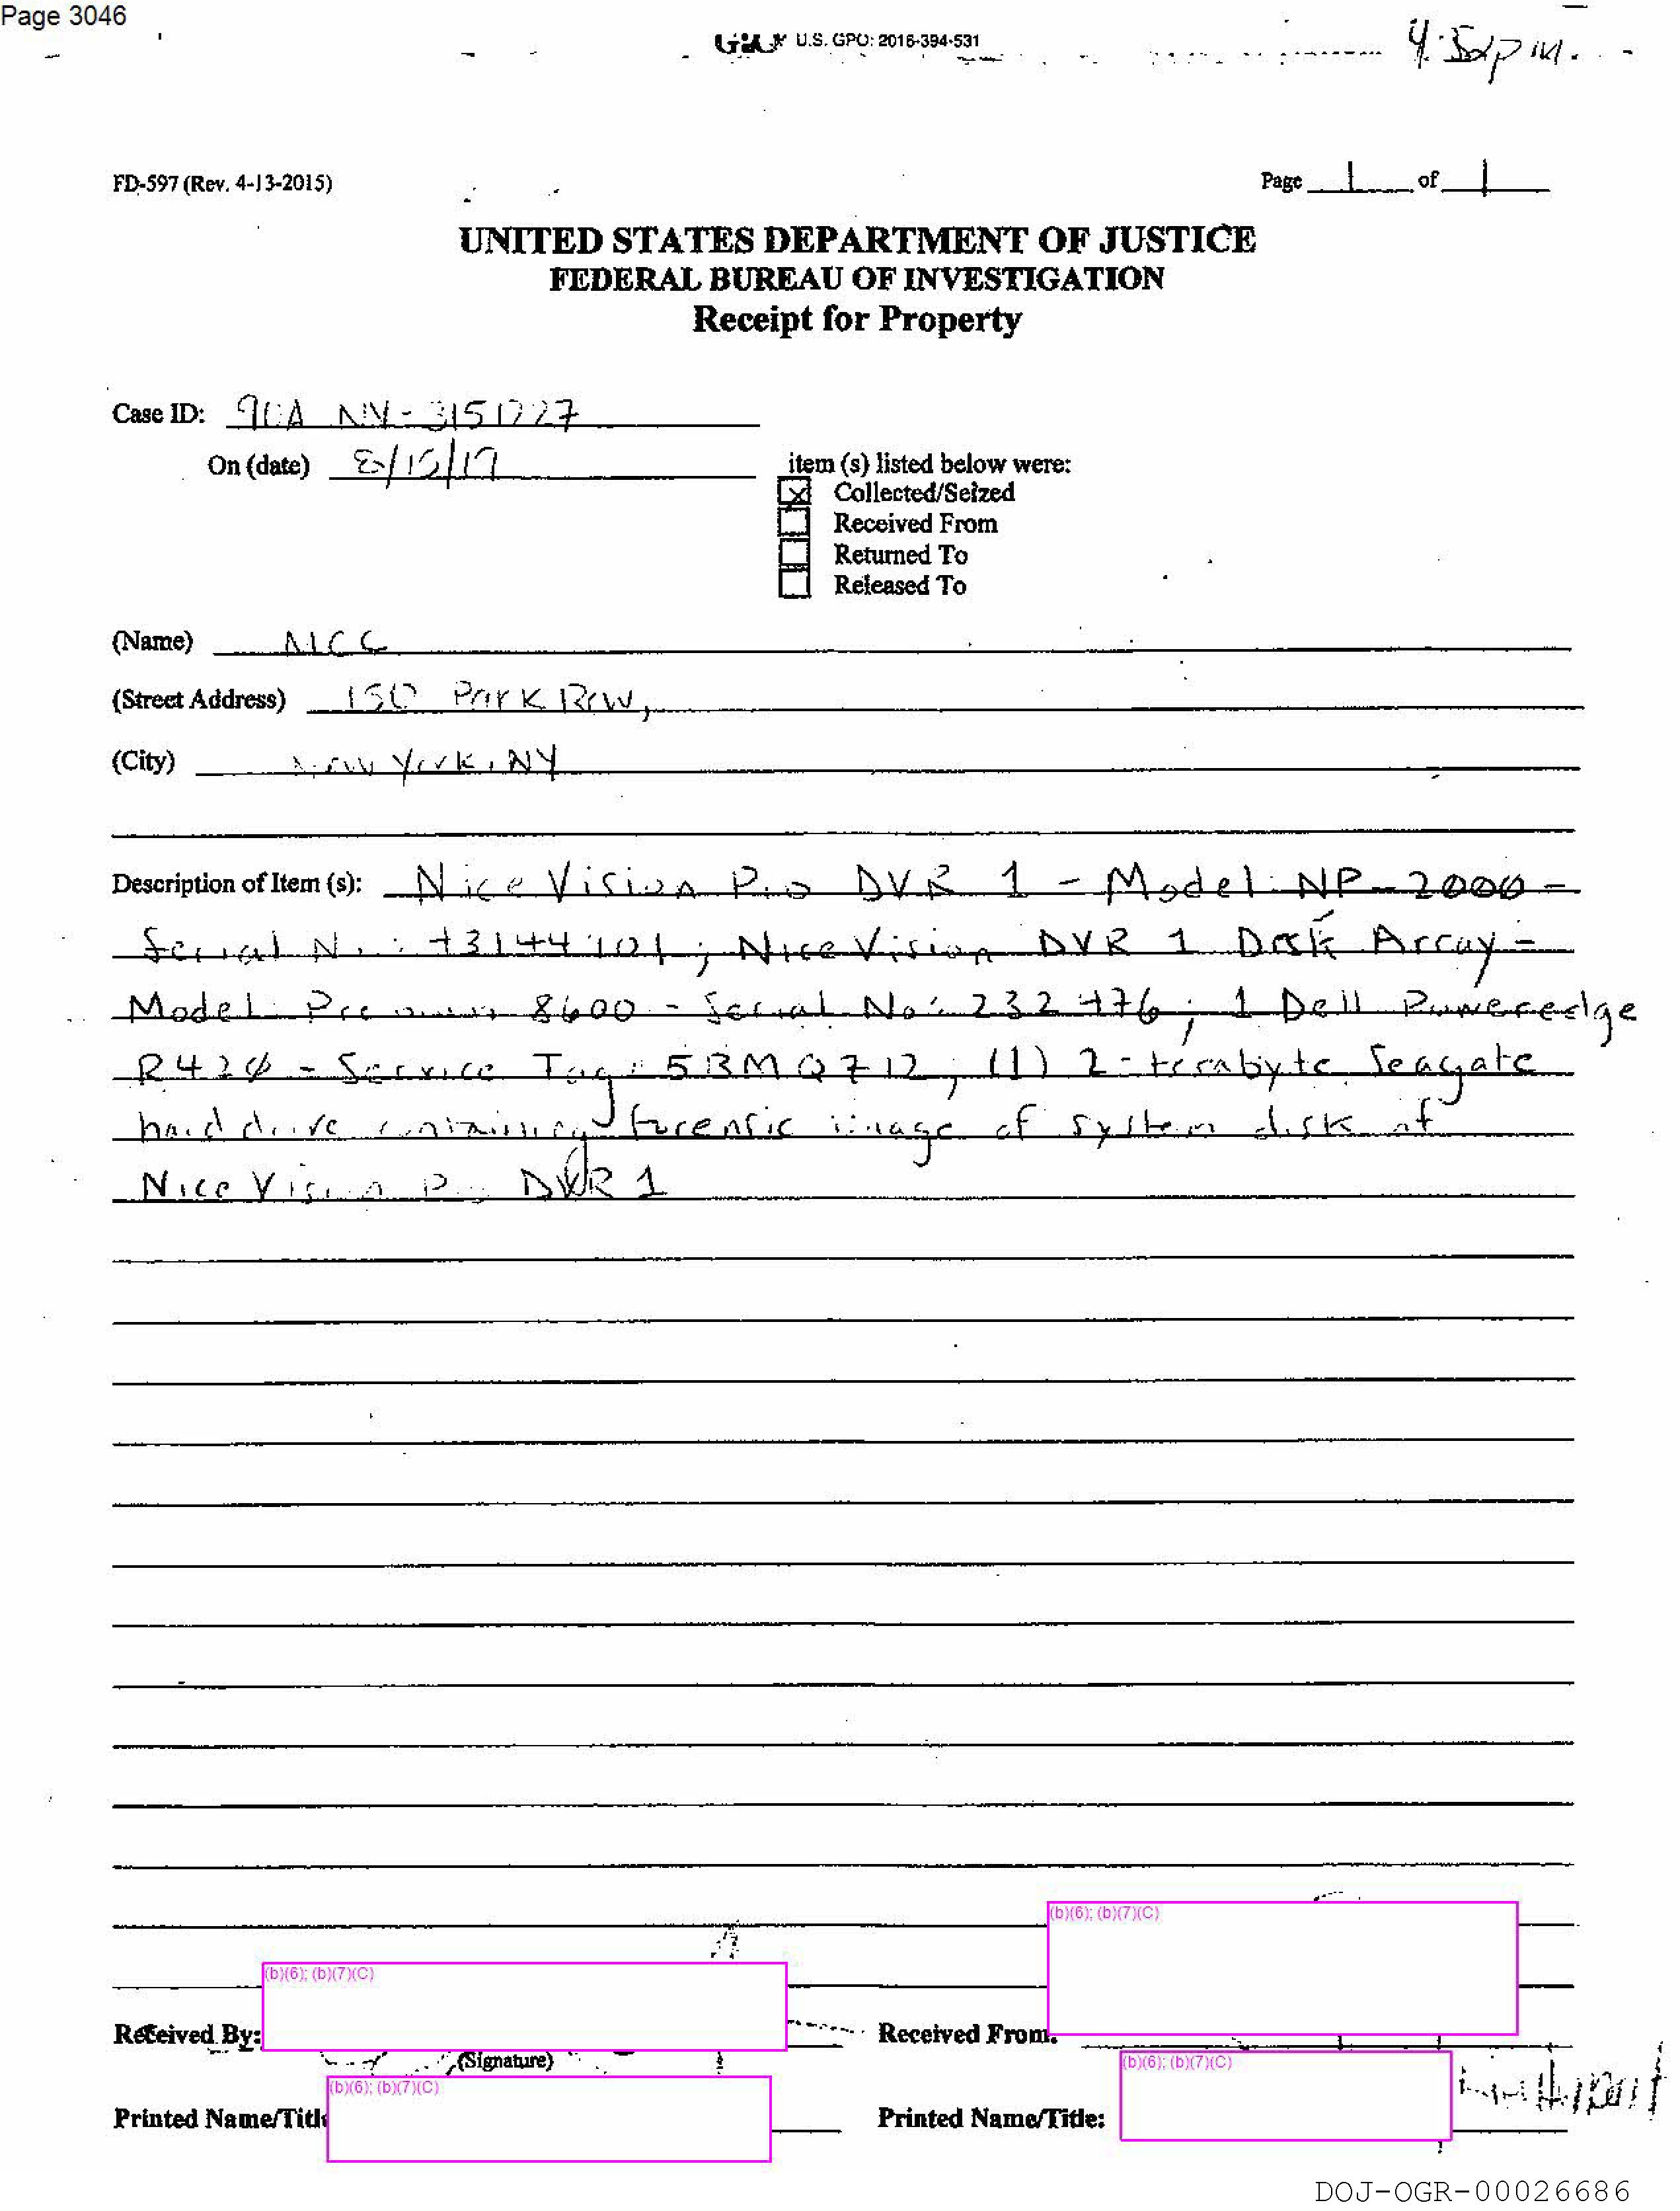 Page 3046
GPO U.S. GPO: 2016-394-531
4:52pm.
FD-597 (Rev. 4-13-2015)
Page 1 of 1
UNITED STATES DEPARTMENT OF JUSTICE
FEDERAL BUREAU OF INVESTIGATION
Receipt for Property
Case ID: 90A NY-3151227
On (date) 8/15/19
item (s) listed below were:
Collected/Seized
Received From
Returned To
Released To
(Name) MCC
(Street Address) 150 Park Row,
(City) New York, NY
Description of Item (s): Nice Vision Pro DVR 1 - Model: NP-2000 -
Serial No.: ; Nice Vision DVR 1 Disk Array -
Model 8600 - Serial No: ; 1 Dell Poweredge
R420 - Service Tag: 5BMQ712; (1) 2-terabyte Seagate
hard drive containing forensic image of system disk of
Nice Vision Pro DVR 1
(b)(6); (b)(7)(C)
(b)(6); (b)(7)(C)
Received By:
Received From:
(Signature)
(b)(6); (b)(7)(C)
(b)(6); (b)(7)(C)
Printed Name/Title
Printed Name/Title:
DOJ-OGR-00026686